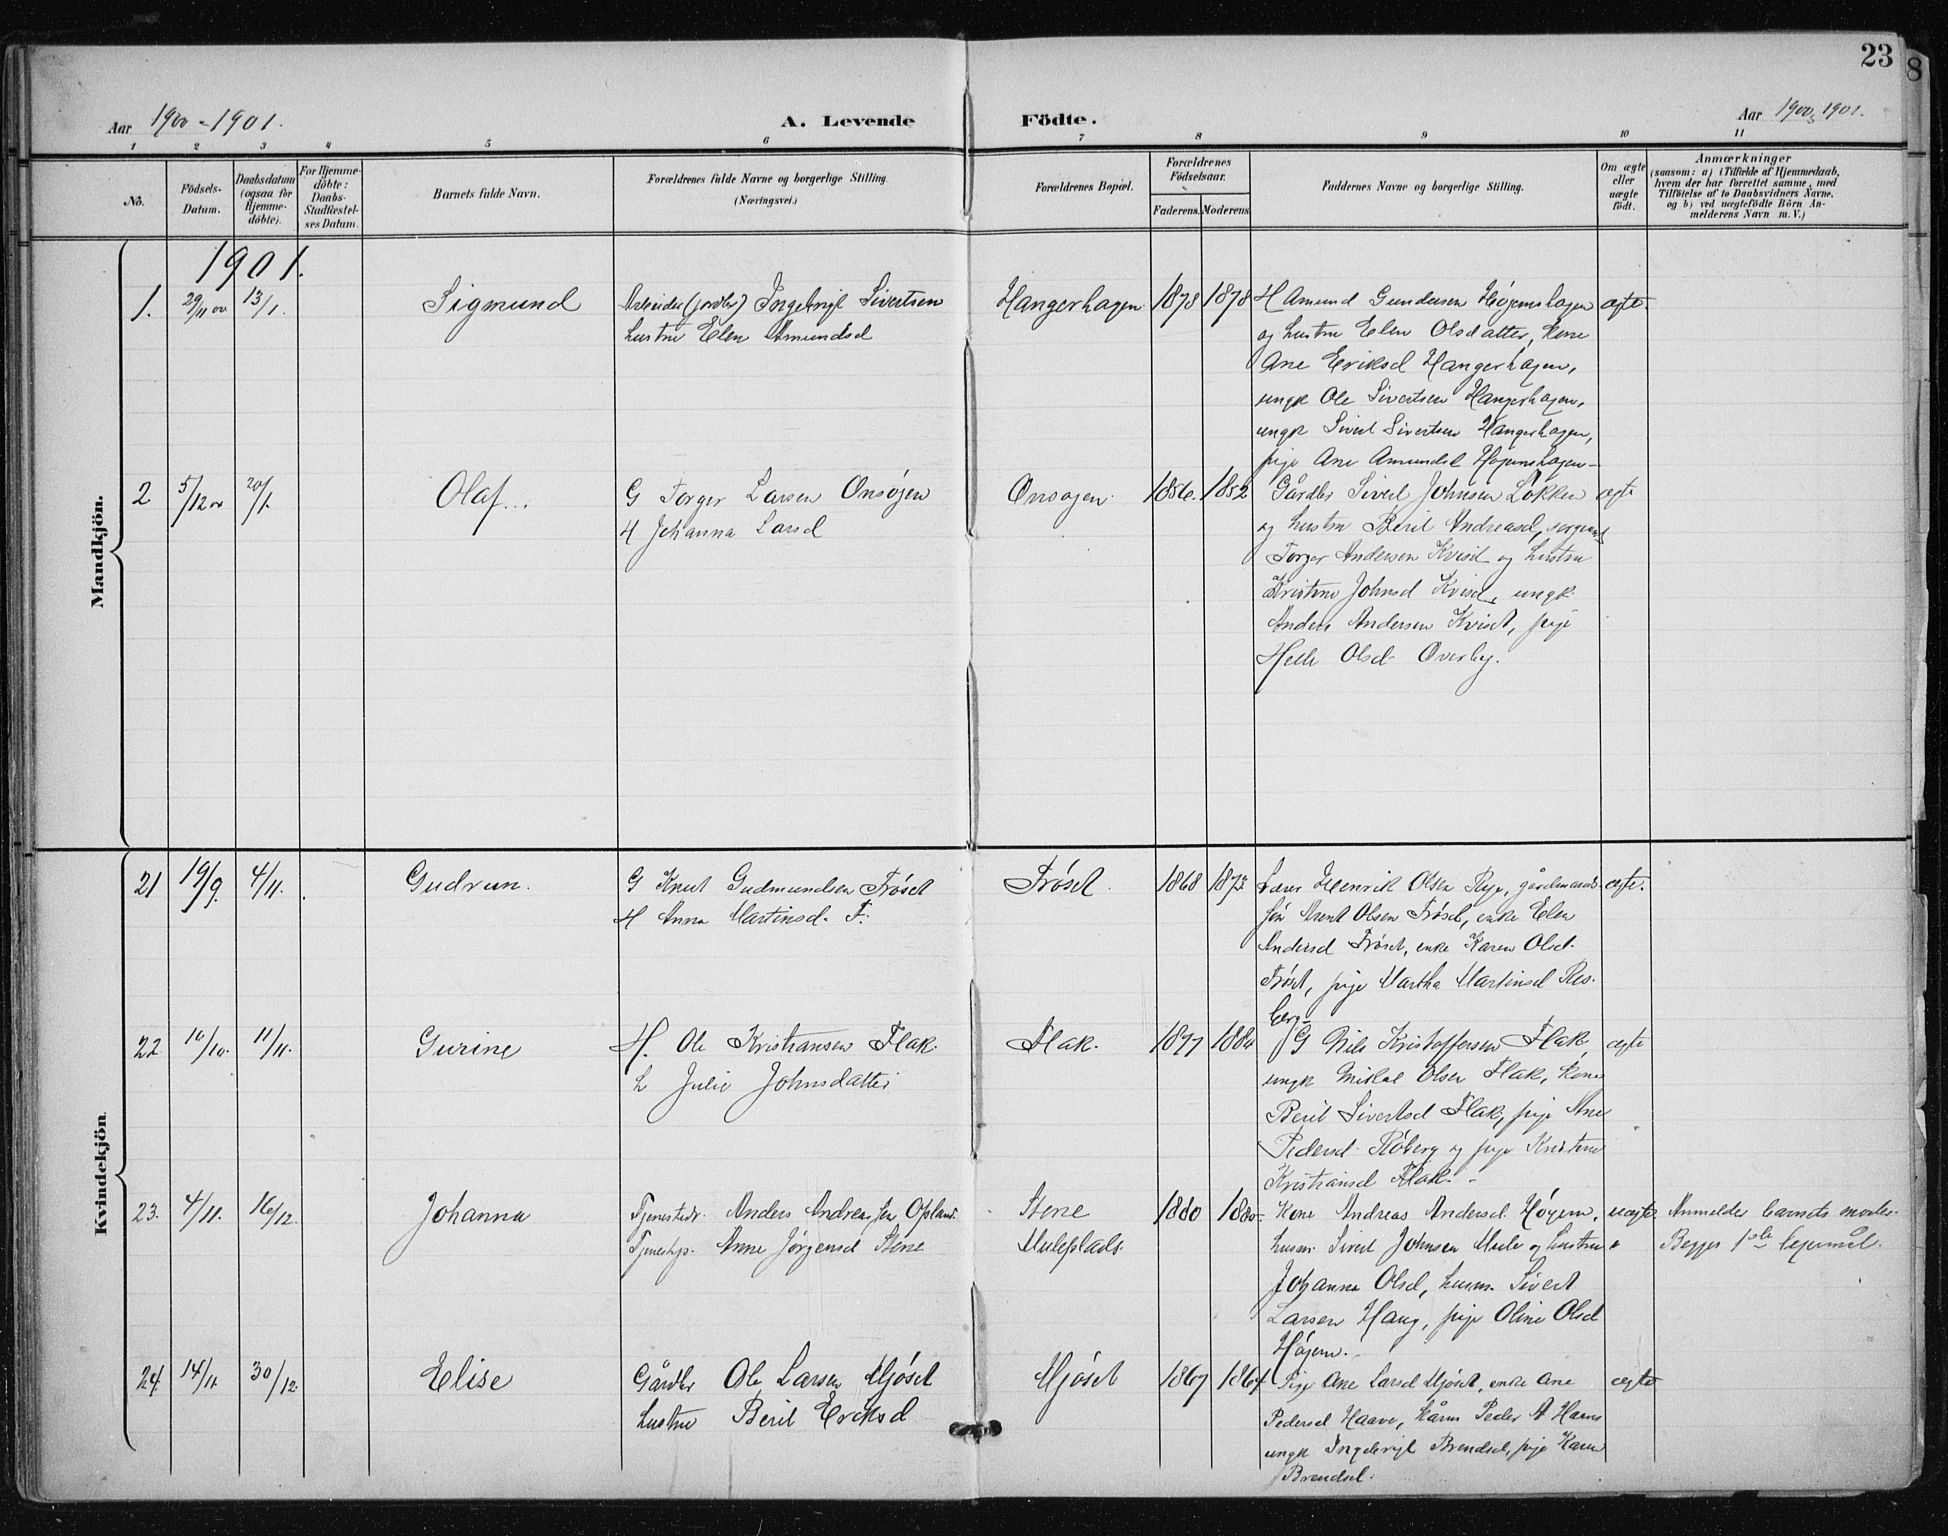 23
8
Aar 1900 - 1901.
A. Levende Födte.
Aar 1900, 1901.
1 2 3 4 5 6 7 8 9 10 11
No.
Födsels-Datum.
Daabsdatum (ogsaa for Hjemmedöbte).
For Hjemmedöbte: Daabs-Stadfæstelses Datum.
Barnets fulde Navn.
Forældrenes fulde Navne og borgerlige Stilling. (Næringsvei.)
Forældrenes Bopæl.
Forældrenes Födselsaar.
Faderens. Moderens.
Faddernes Navne og borgerlige Stilling.
Om ægte eller uægte födt.
Anmærkninger
(saasom: a) i Tilfælde af Hjemmedaab,
hvem der har forrettet samme, med
Tilföielse af to Daabsvidners Navne,
og b) ved uægtefödte Börn Anmelderens Navn m. V.)
Mandkjön.
1901.
1. 29/11 00 13/1. Sigmund
Arbeider (jordbr) Ingebrigt Sivertsen
hustru Elen Amundsd
Hangerhagen 1878 1878
H Amund Gundersen Høgemshagen
og hustru Elen Olsdatter, kone
Ane Eriksd Hangerhagen,
ungk Ole Sivertsen Hangerhagen,
ungk Sivert Sivertsen Hangerhagen,
pige Ane Amundsd
ægte.
2 5/12 00 20/1. Olaf
G Torger Larsen Onsöjen
H Johanna Larsd
Onsøjen. 1856. 1852
Gårdbr Sivert Johnsen Løkken
og hustru Beril Andreasd,
Torger Andersen Kvisd og hustru
Kristine Johnsd Kvisd, ungk.
Anders Andersen Kviset, pige
Olsd Overby.
ægte
Kvindekjön.
21 19/9. 4/11. Gudrun.
G Knut Gudmundsen Tröset
H Anna Martinsd. T.
Tröset. 1868 1873
Henrik Olsen Rye, gårdmands-
søn Arent Olsen Tröset, enke Elen
Andersd Tröset, enke Karen Olsd.
Tröset, pige Martha Martinsd Ros-
berg.
ægte.
22 10/10. 11/11. Gurine
H. Ole Kristiansen Flak
h Julie Johnsdatter
Flak. 1877 1880
G Nils Kristoffersen Flak,
ungk Mikal Olsen Flak, kone
Beril Sivertsd Flak, pige Ane
Pedersd Röberg og pige Kristine
Kristiansd Flak.
ægte
23. 4/11. 16/12. Johanna
Tjenestedr. Anders Andreasen Opland.
Tjenestep. Anne Jørgensd Stene
Stene
Muleplads.
1880 1880
Kone Andreas Andersd Høgem,
husm. Sivert Johnsen Mule og hustru
Johanna Olsd, husm. Sivert
Larsen Haug, pige Oline Olsd
Høgem.
uægte
Anmelder barnets moder.
Begges 1ste lejermål.
24. 14/11. 30/12. Elise
Gårdbr Ole Larsen Mjöset
hustru Beril Eriksd
Mjöset 1867 1864
Pige Ane Larsd Mjöset, enke Ane
Pedersd Haave, kårm Peder A
ungk Ingebrigt Brendsel, pige Karen
Brendsel.
ægte